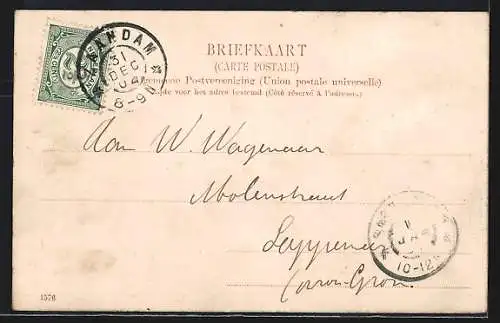 ZAANDAM
31
DEC
04
8-9
BRIEFKAART
(CARTE POSTALE)
Algemeene Postvereeniging (Union postale universelle)
Zijde voor het adres bestemd (Côté réservé à l'adresse)
Aan W. Wagenaar
Molenstraat
JAN
10-12
1576